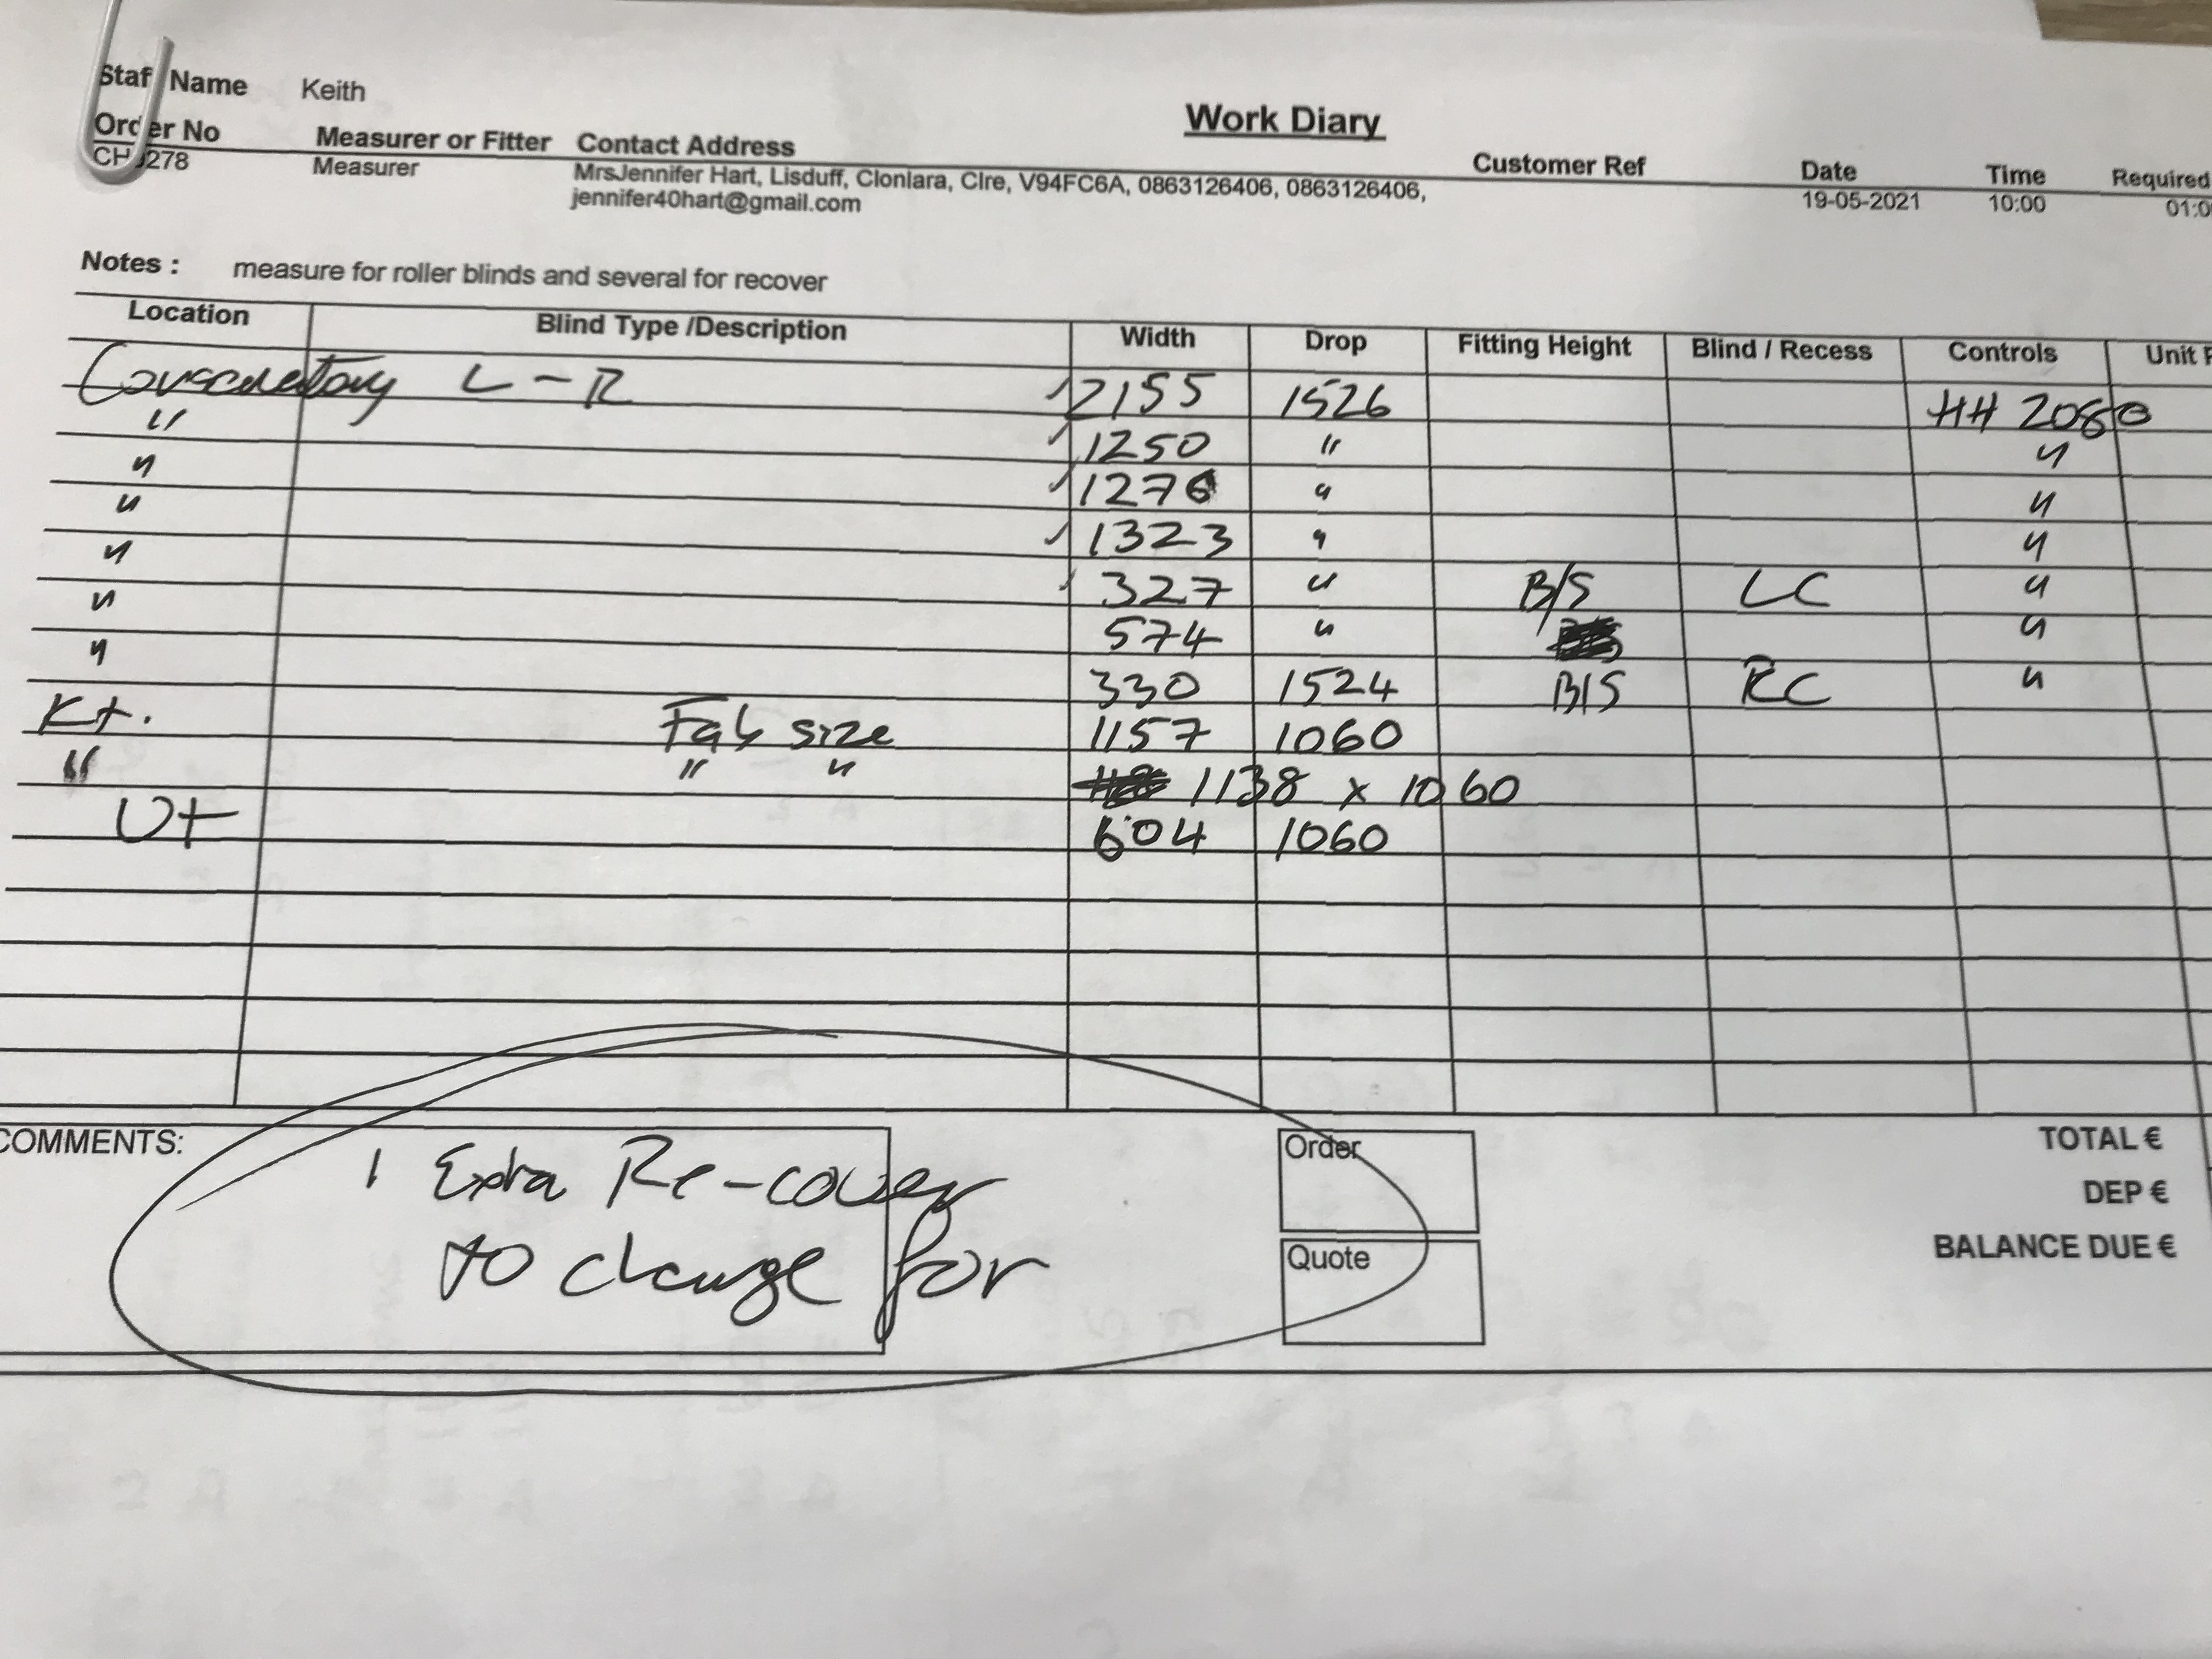 Work Diary
Staff Name Keith
Order No Measurer or Fitter Contact Address Customer Ref Date Time Required
278 Measurer MrsJennifer Hart, Lisduff, Clonlara, Clre, V94FC6A, 0863126406, 0863126406, 19-05-2021 10:00 01:0
jennifer40hart@gmail.com
Notes : measure for roller blinds and several for recover
Location Blind Type /Description Width Drop Fitting Height Blind / Recess Controls Unit
Conservatory L-R 2155 1526 HH
" 1250 " "
" 1276 " "
" 1323 " "
" 327 " B/S LC "
" 574 " "
" 330 1524 B/S RC "
Kt. Fab size 1157 1060
" " " 1138 x 1060
Ut 604 1060
COMMENTS: 1 Extra Re-cover
to charge for
Order
Quote
TOTAL €
DEP €
BALANCE DUE €